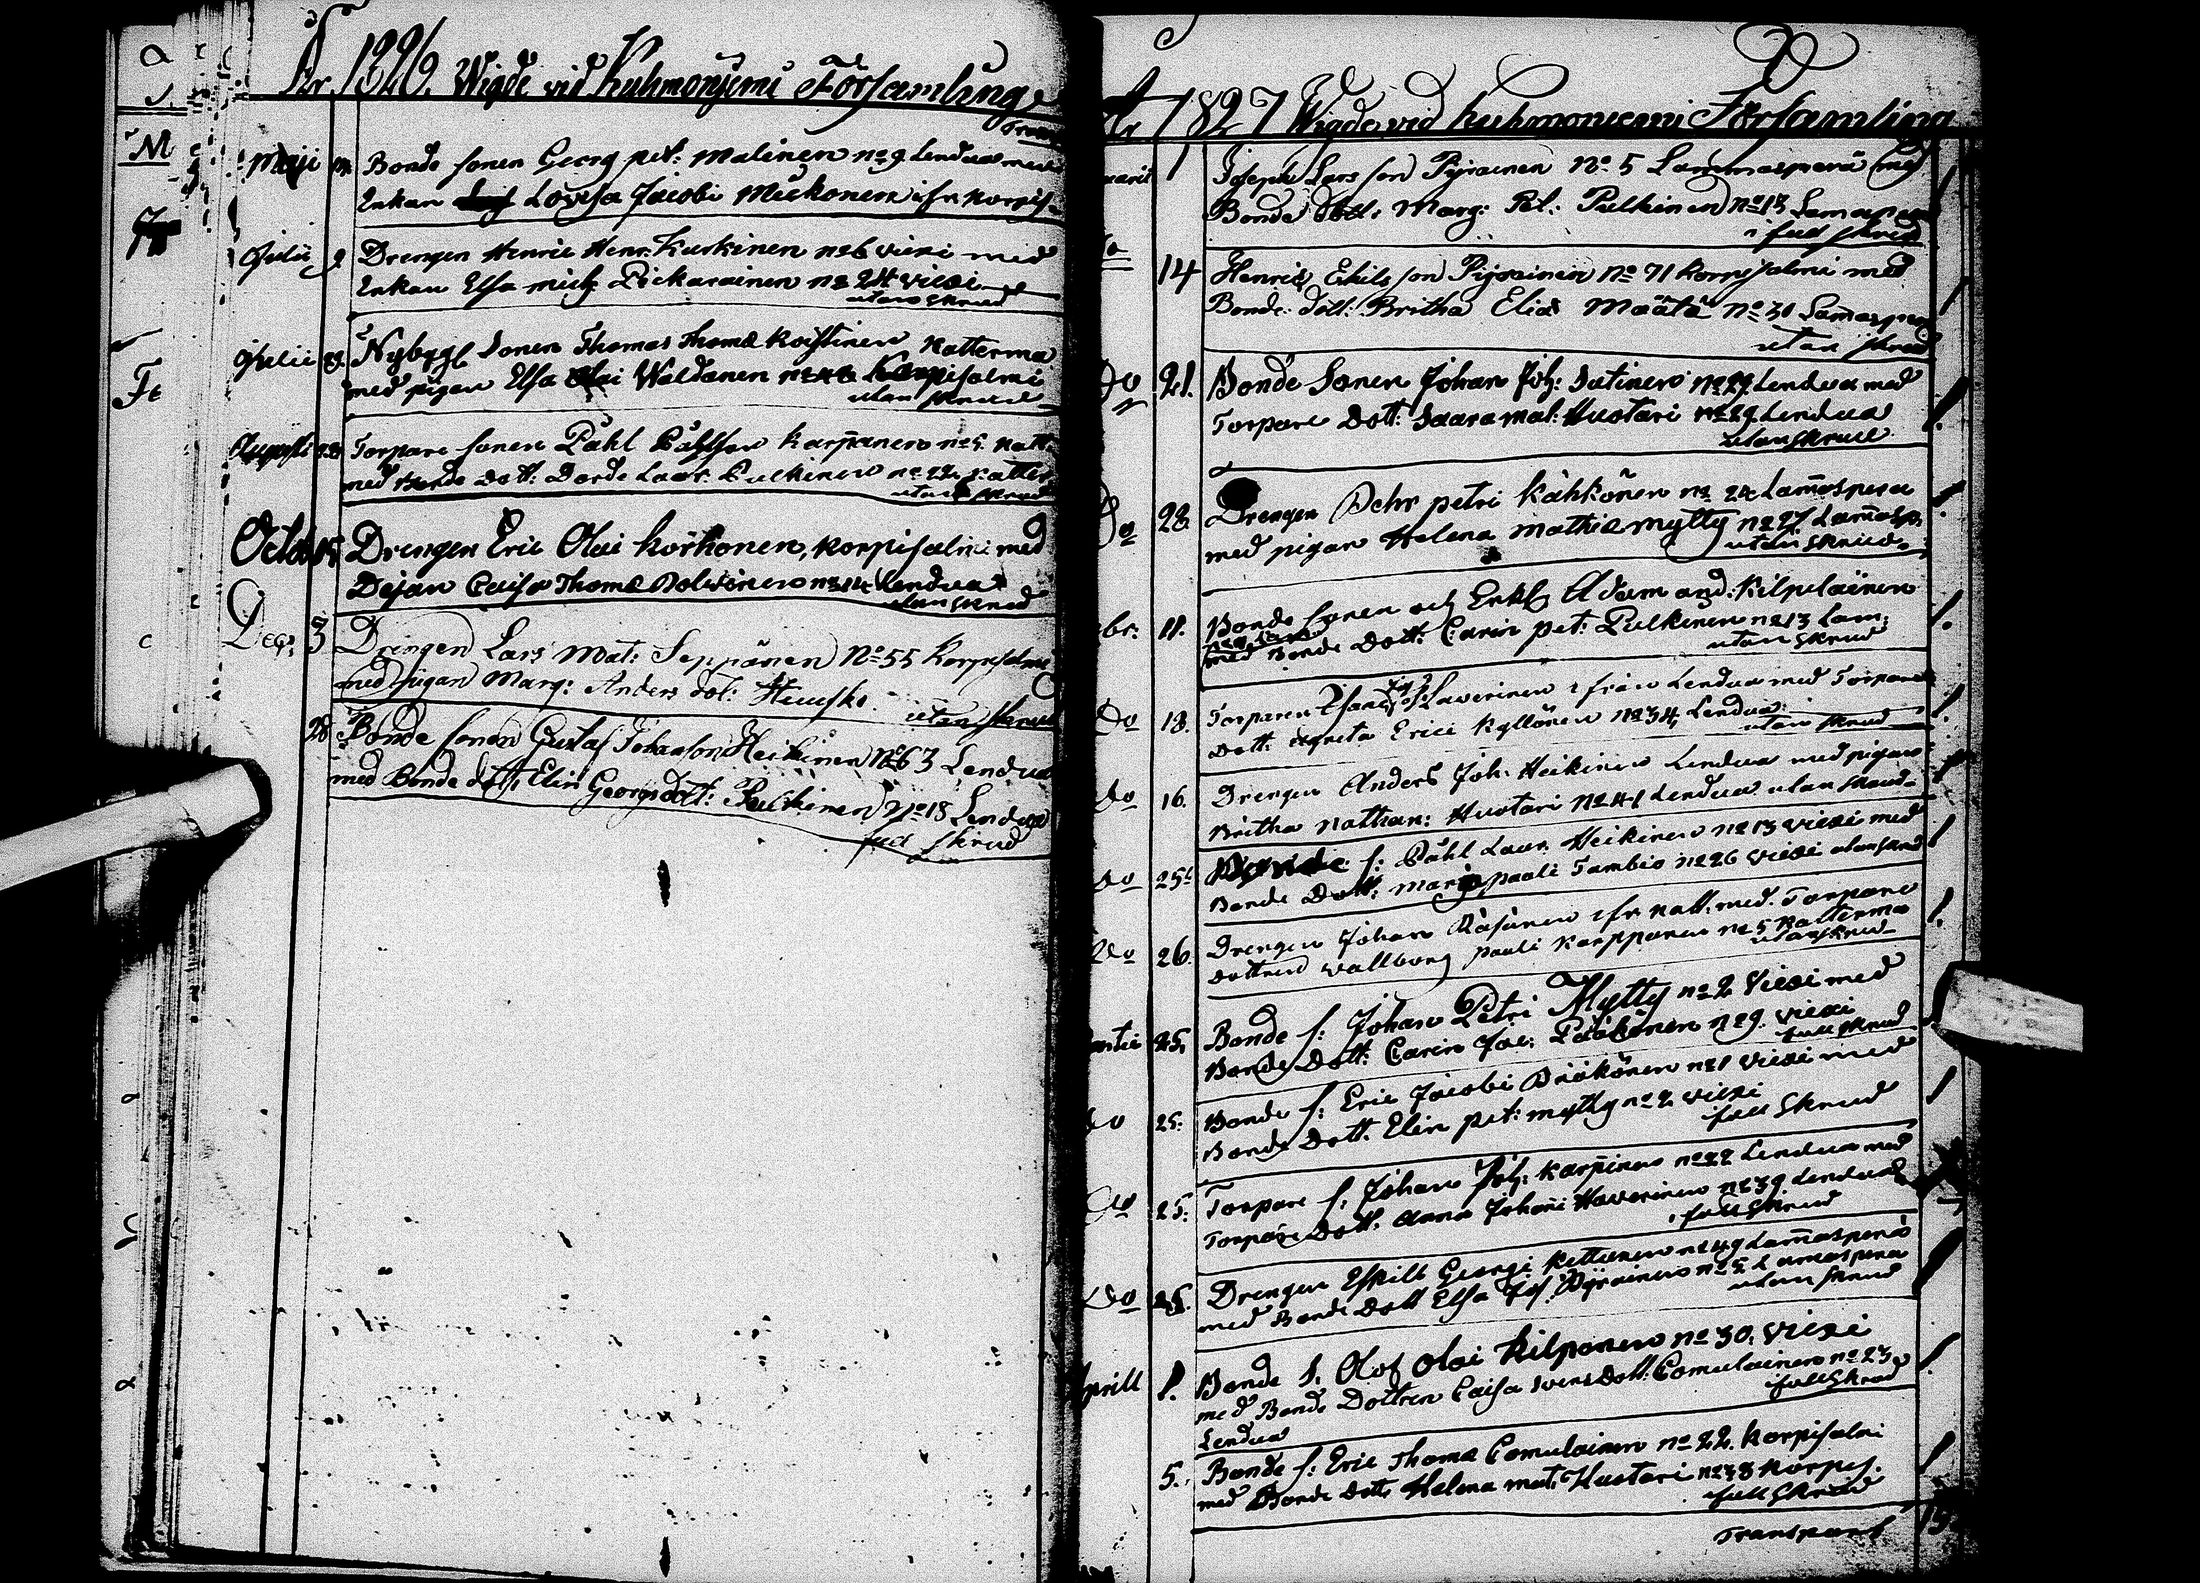 År 1826. Wigde vid Kuhmoniemi Församling
Trans
Maji Bonde sonen Georg pet: Malinen no 9 Lendua med
Enkan Lovisa Jacobi Mickonen ifr. Korpis.
Julii 9 Drengen Henric Henr: Kurkinen no 6 Viexi med
Enkan Elsa Mich: Pickarainen no 24 Viexi
utan skrud
Julii 23. Nybygg: Sonen Thomas Thomæ Koistinen Katterma
med pigan Elsa Olai Waldanen Korpisalmi
utan skrud
Augusti Torpare sonen Påhl Påhlson Karppanen no 5. Katt
med Bonde Dott: Dorde Laur: Pulkinen no 22 Katter
utan skrud
Octob 15 Drengen Eric Olai Korhonen, Korpisalmi med
Pejan Caisa Thomæ Polvinen no 14 Lendua
utan skrud
Dec: 3 Drengen Lars Mat: Seppänen No 55 Korpisalmi
med pigan Marg: Anders dot: Heusk
utan skrud
28 Bonde sonen Gustaf Johansson Heikinen No 63 Lendua
med Bonde dott: Elin Georgsdott: Pulkinen No 18 Lendua
full skrud
År 1827 Wigde vid Kuhmoniemi Församling
1 Joseph Lars son Pyrainen No 5 Lammasperä med
Bonde dott: Marg: Pet: Pulkinen no 13 Lamasper
i full skrud
14 Henric Eskils son Pyrainen No 71 Korpisalmi med
Bonde dott: Britha Eliæ Määtä No 30 Lamasper
utan skrud
Do 21. Bonde Sonen Johan Joh: Sutinen no 29 Lendua med
Torpare Dott: Saara mat: Huotari no 29 Lendua
utan skrud
Do 28 Drengen Pehr petri Kähkönen no 24 Lam̄aspera
med pigan Helena Mathiæ Mytty no 27 Lam̄asp.
utan skrud
br: 11. Bonde sonen och Enkl: Adam And: Kilpeläinen
med Bonde Dott: Carin pet: Pulkinen no 13 Lam:
utan skrud
Do 18. Torparen Isac Saverinen ifrån Lendua med Torpare
Dott: Agneta Erici Kyllönen no 34 Lendua
utan skrud
Do 16. Drengen Anders Joh: Heikinen Lendua med pigan
Britha Nathan: Huotari no 41 Lendua utan skrud
Do 25 Bonde s: Påhl Laur: Heikinen no 13 Viexi med
Bonde Dott: Maria pauli Tambio no 26 Viexi utan skrud
Do 26. Drengen Johan Räsänen ifr Katt: med Torpare
dottren Wallborg pauli Karppanen no 5 Katterma
utan skrud
25. Bonde s: Johan Petri Mytty no 2 Viexi med
Bonde Dott: Carin Jac: Pääkönen no 9. Viexi
full skrud
Do 25: Bonde s: Eric Jacobi Pääkönen no 1 Viexi med
Bonde Dott: Elin pet: Mytty no 2 Viexi
full skrud
Do 25: Torpare s: Johan Joh: Karpinen no 22 Lendua med
Torpare Dott: Anna Johani Haverinen no 39 Lendua
i full skrud
Do 25. Drengen Eskill Georgi Kettunen no 49 Lam̄asperä
med Bonde Dott Elsa Jos: Pyrainen no 5 Lamaspera
utan skrud
prill 1. Bonde s. Olof Olai Kilponen no 30. Viexi
med Bonde Dottren Caisa Svens Dott: Comulainen no 23
Lendua
i full skrud
5. Bonde s: Eric Thomæ Comulainen no 22. Korpisalmi
med Bonde Dott: Helena mat: Huotari no 38 Korpis.
full skrud
Transport